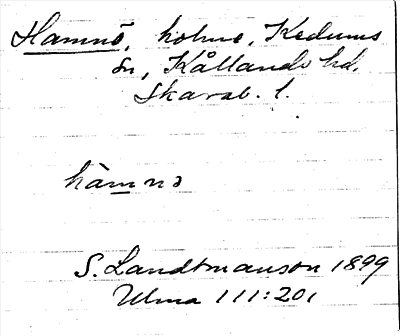 Hamnö, holme, Kedums
sn, Kållands hd.
Skarab. l.
hàmnə
S. Landtmanson 1899
Ulma 111:201